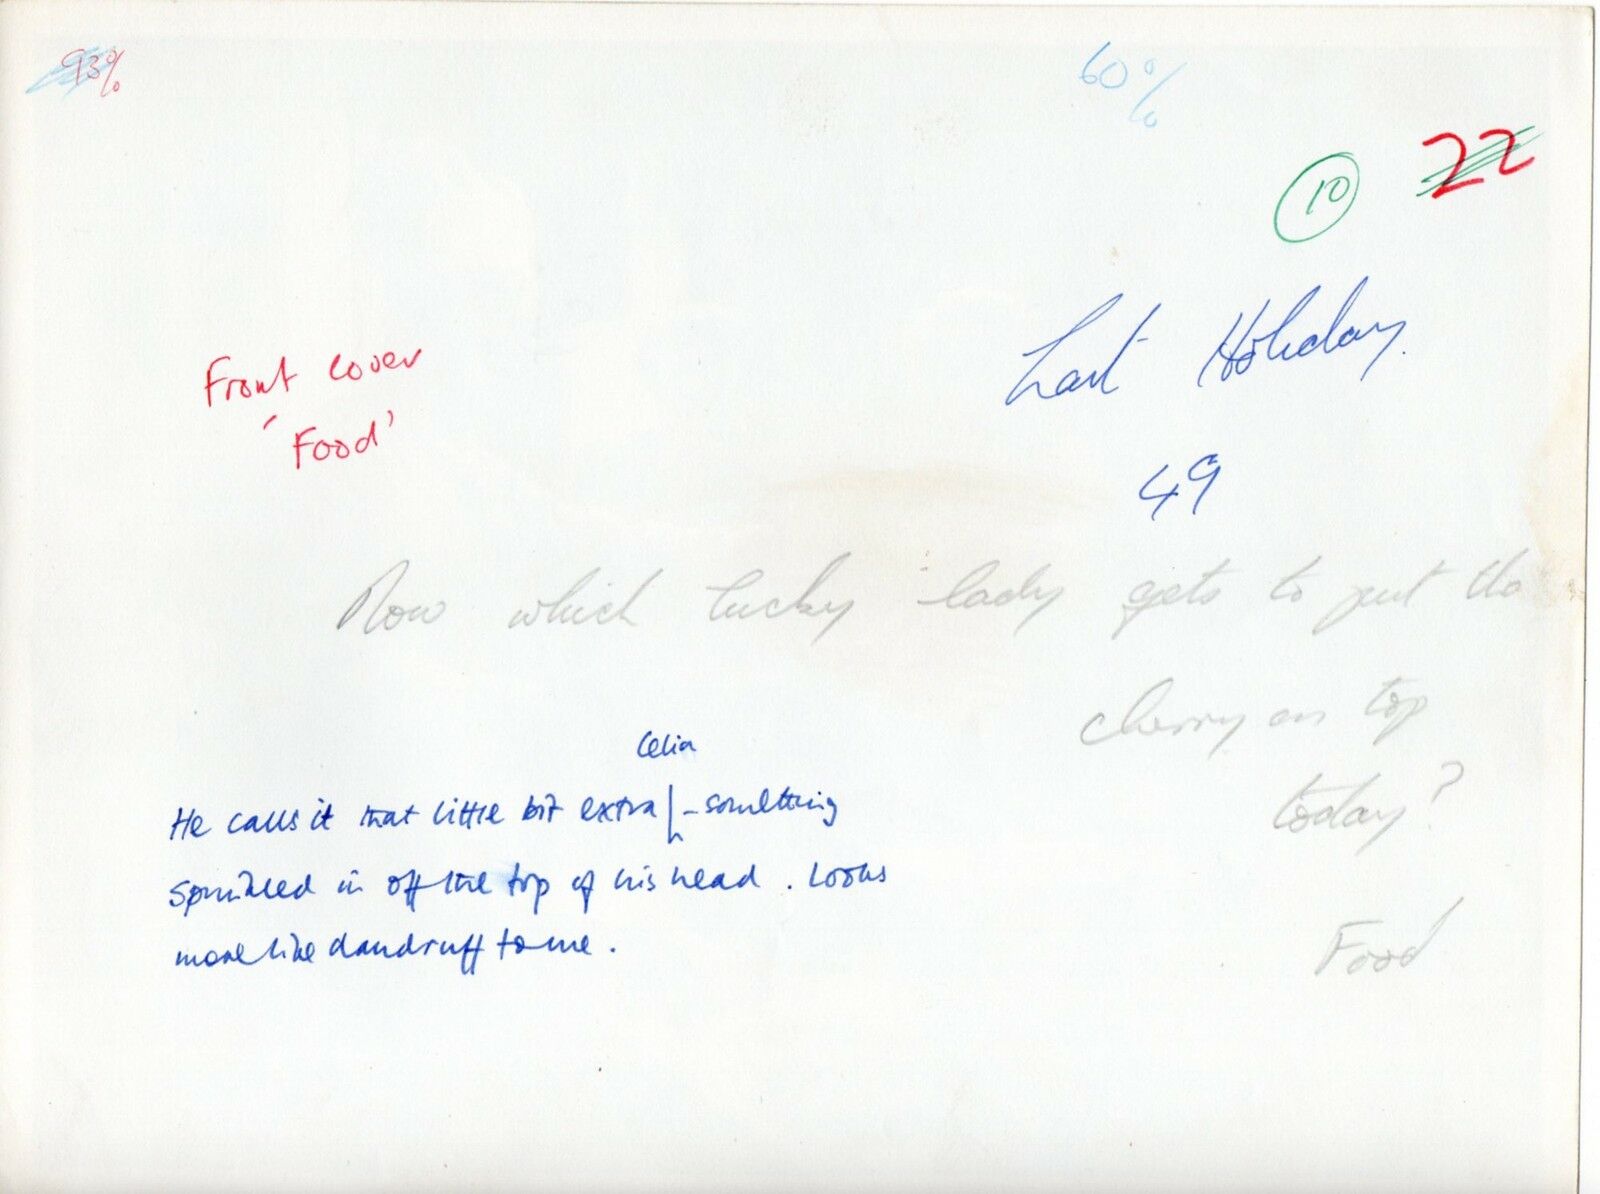 93%
60%
10
22
Last Holiday.
Front cover
'Food'
49
Now which lucky lady gets to put the
cherry on top
today?
Food
Celia
He calls it that little bit extra - something
sprinkled in off the top of his head. Looks
more like dandruff to me.